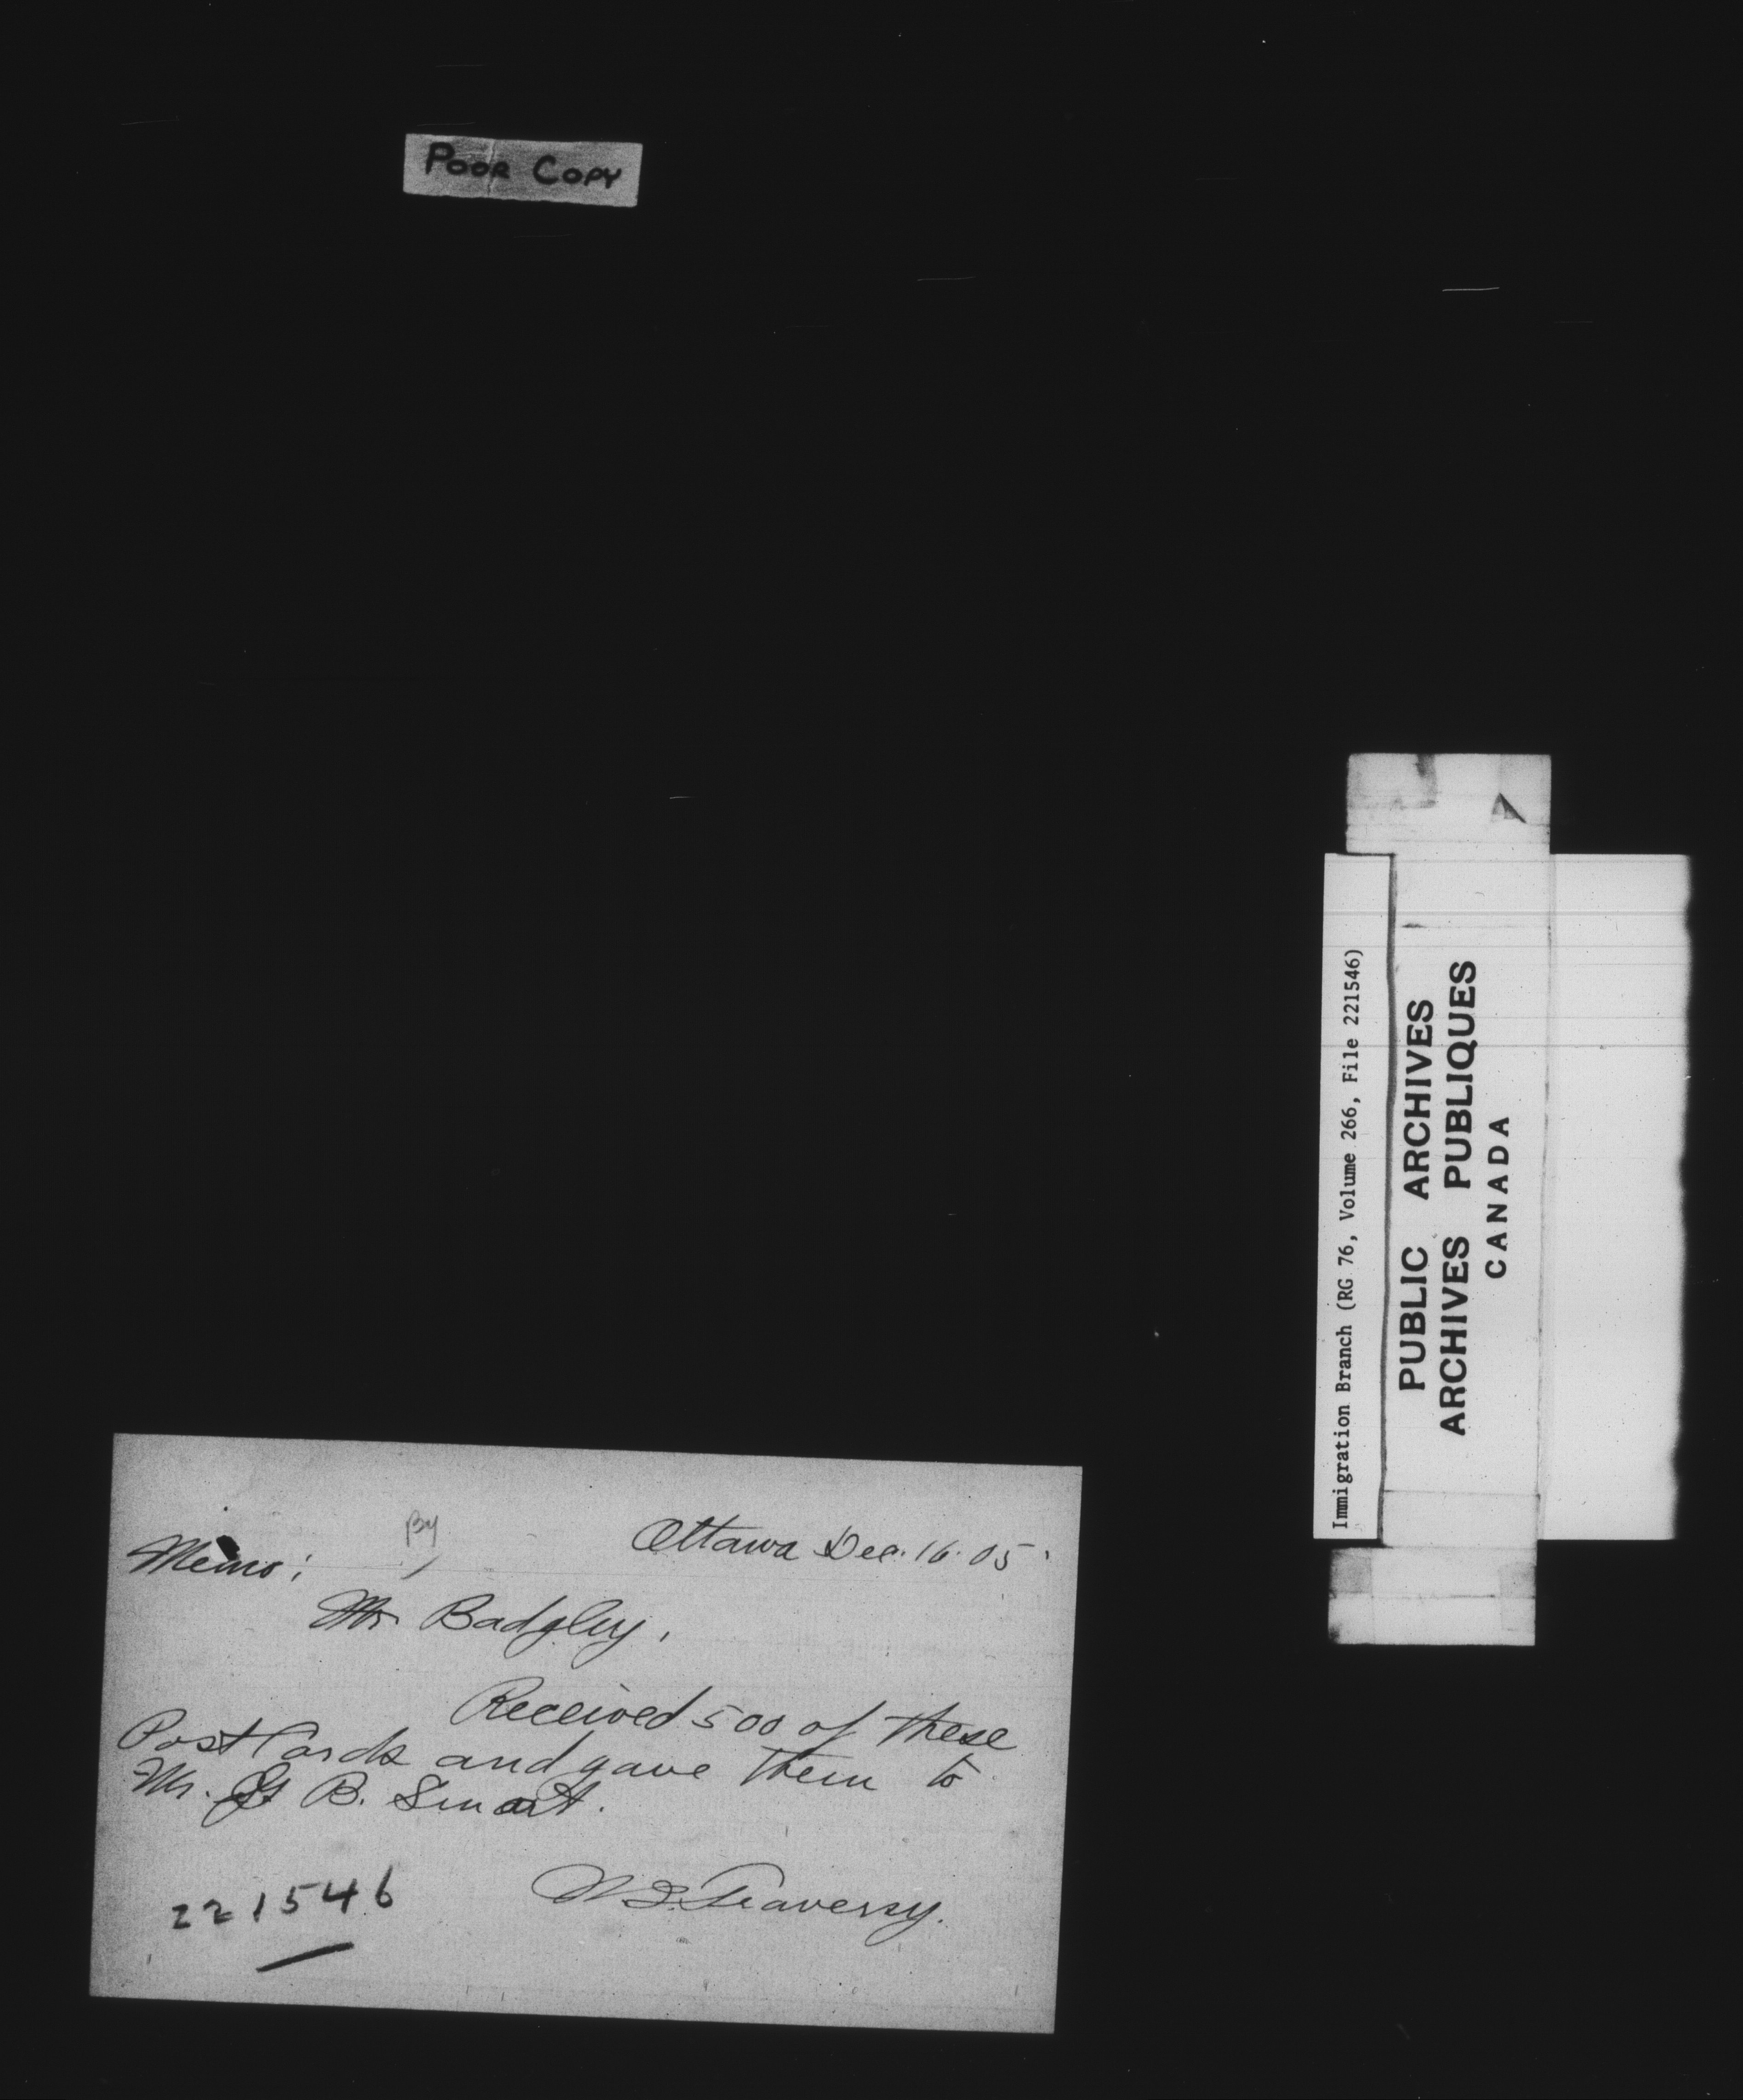 POOR COPY
Memo; By Ottawa Dec. 16. 05.
Mr Badgley,
Received 500 of these
Post Cards and gave them to
Mr. G. B. Smart.
221546
Traversy.
Immigration Branch (RG 76, Volume 266, File 221546)
PUBLIC ARCHIVES
ARCHIVES PUBLIQUES
CANADA